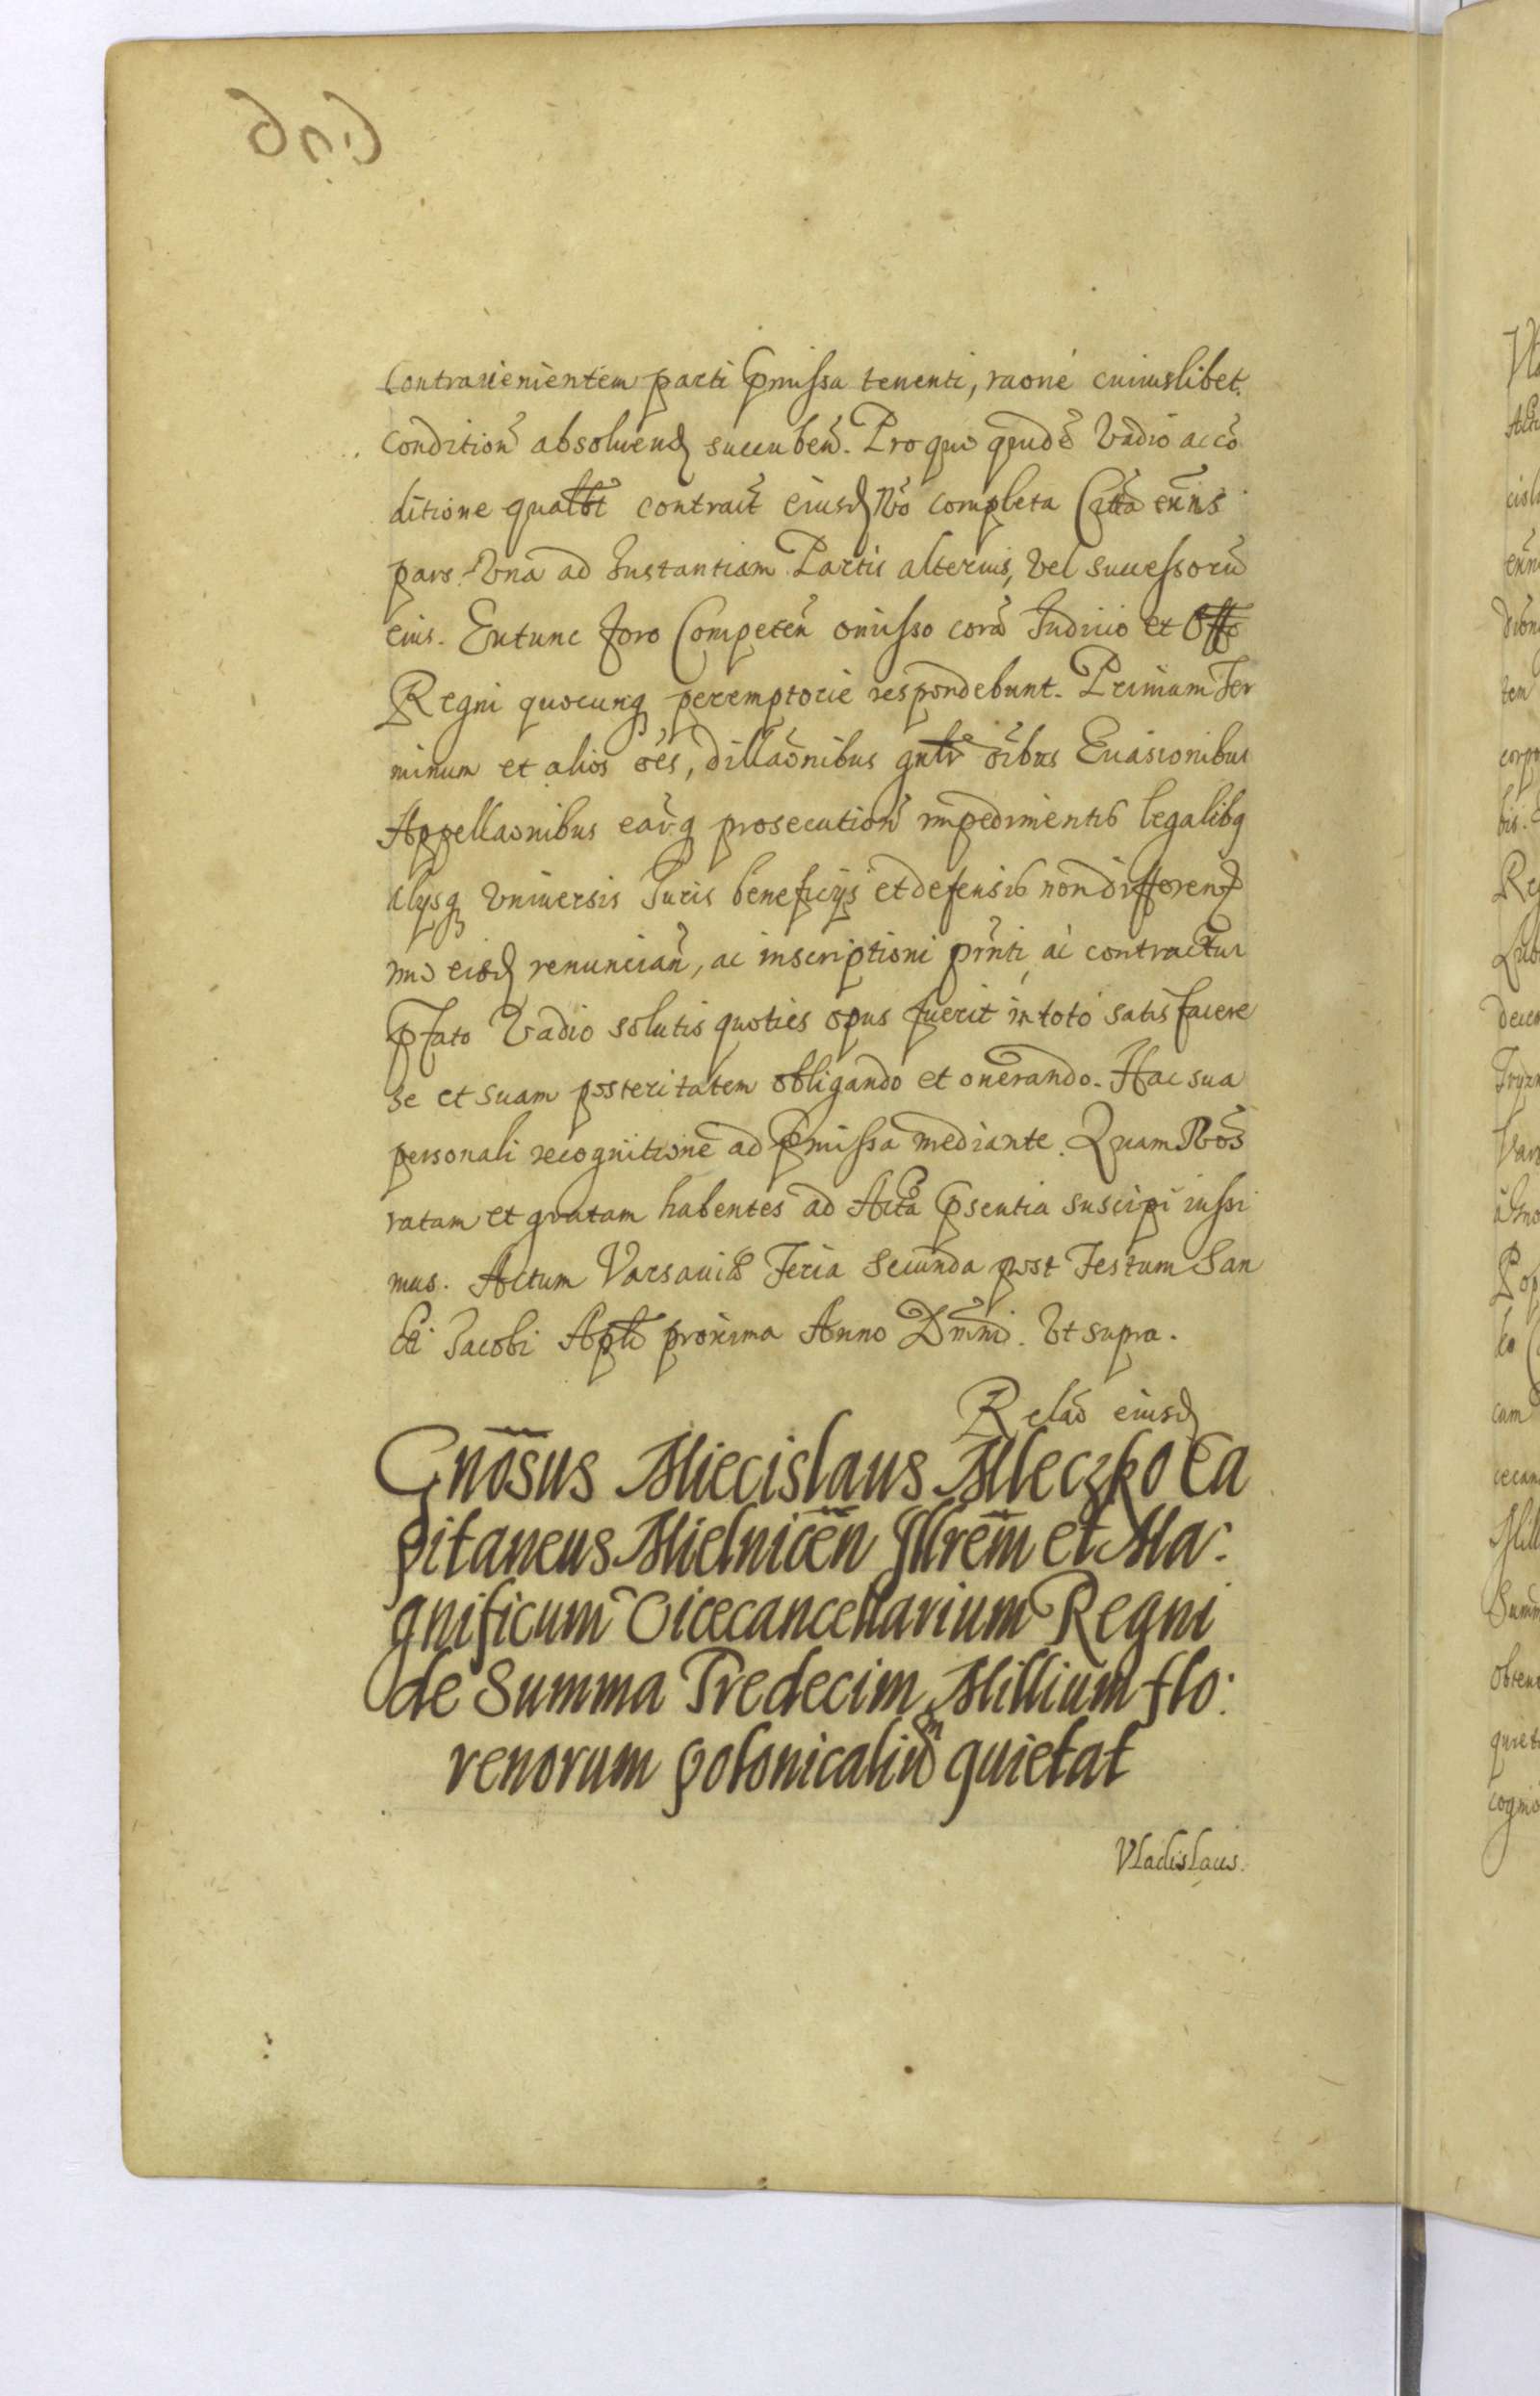 Contravenientem parti pmissa tenenti, raone cuiuslibet
condition̄ absoluend succuben̄. Pro quo quidē Vadio ac cō
ditione qualbt contract̄ eiusd Nō completa Citta eūns
pars Vna ad Instantiam Partis alterius, vel successorū
eius. Extunc foro Competen̄ omisso corā Iudicio et Offo
Regni quocunq peremptorie respondebunt. Primum Ter
minum et alios oēs, dillaōnibus gnlr oībus Euasionibus
Appellaonibus earq prosecution̄ impedimentis legalibq
alysq Vniuersis Iuris beneficijs et defensis non differend
imo eisd renuncian̄, ac inscriptioni prn̄ti, ac contractui
pfato Vadio solutis quoties opus fuerit in toto satis facere
se et suam posteritatem obligando et onerando. Hac sua
personali recognitione ad pmissa mediante. Quam Nōs
ratam et gratam habentes ad Acta psentia suscipi iussi
mus. Actum Varsauiæ Feria Secunda post Festum San
cti Jacobi Apli proxima Anno Dn̄ni. Vt supra.
Relaō eiusd
Gnōsus Miecislaus Mleczko Ca
pitaneus Mielnicen̄ Illrem̄ et Ma:
gnificum Vicecancellarium Regni
de Summa Tredecim Millium flo:
renorum polonicaliūm quietat
Vladislaus.